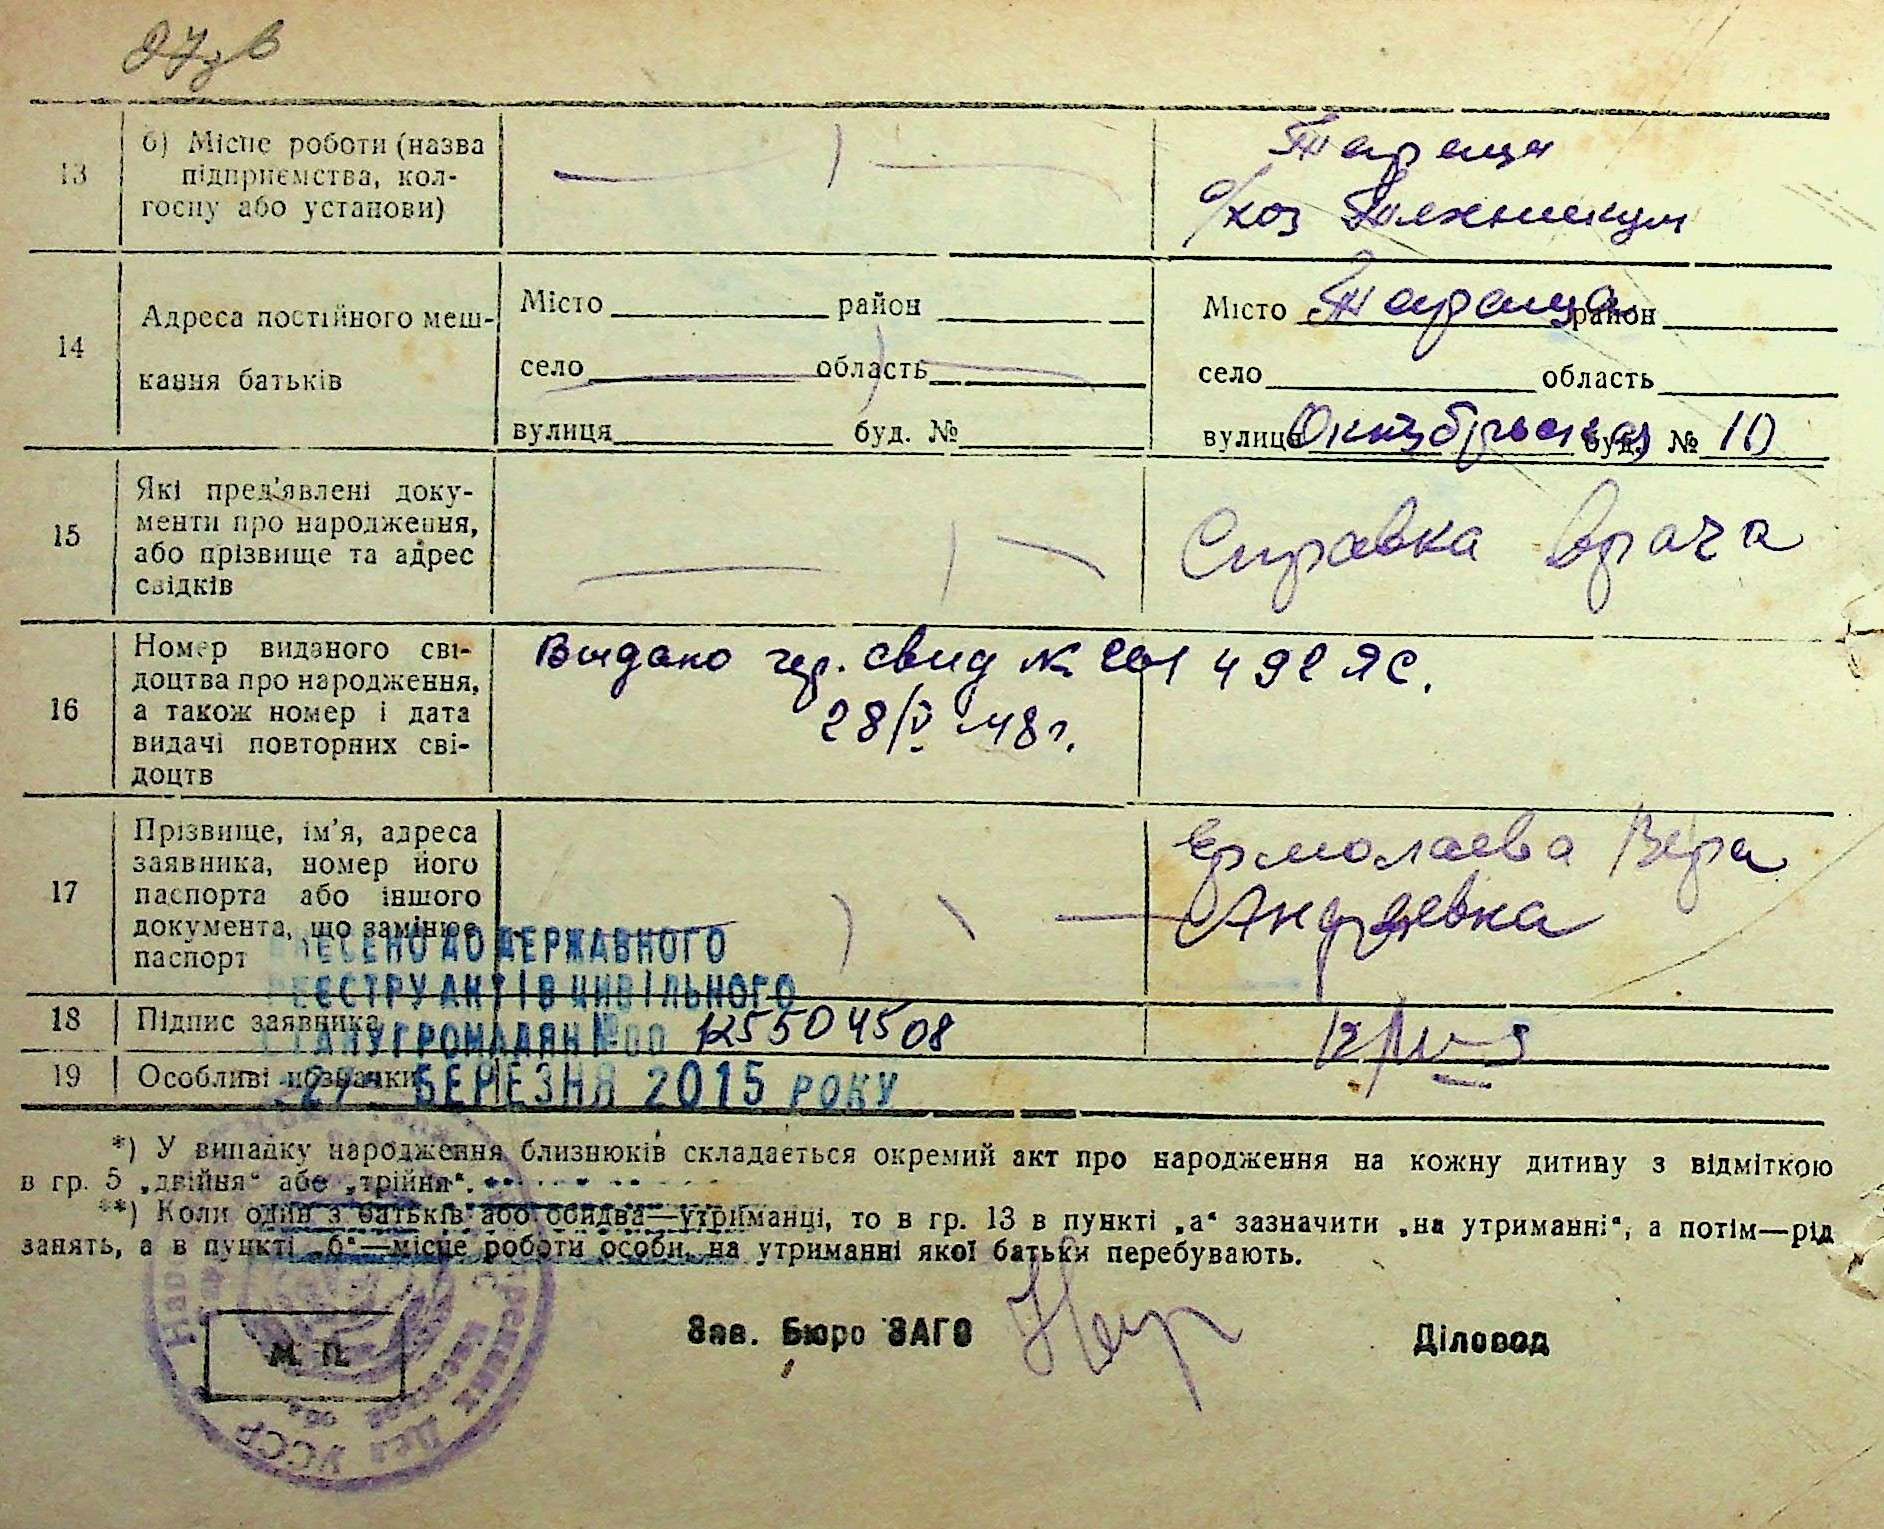 13
б) Місце роботи (назва
підприємства, кол-
госпу або установи)
Тараща
с/хоз Техникум
14
Адреса постійного меш-
кання батьків
Місто район
село область
вулиця буд. №
Місто Тараща район
село область
вулиця Октябрьская буд. № 10
15
Які пред'явлені доку-
менти про народження,
або прізвище та адрес
свідків
Справка врача
16
Номер виданого сві-
доцтва про народження,
а також номер і дата
видачі повторних сві-
доцтв
Выдано гер. свид № 491 ЯС.
28/V 48 г.
17
Прізвище, ім'я, адреса
заявника, номер його
паспорта або іншого
документа, що замінює
паспорт
Ермолаева Вера
Андреевна
ВНЕСЕНО ДО ДЕРЖАВНОГО
РЕЄСТРУ АКТІВ ЦИВІЛЬНОГО
СТАНУ ГРОМАДЯН № 00 125504508
27 БЕРЕЗНЯ 2015 РОКУ
18
Підпис заявника
19
Особливі позначки
*) У випадку народження близнюків складається окремий акт про народження на кожну дитину з відміткою
в гр. 5 „двійня“ або „трійня“.
**) Коли один з батьків або обидва—утриманці, то в гр. 13 в пункті „а“ зазначити „на утриманні“, а потім—рід
занять, а в пункті „б“—місце роботи особи, на утриманні якої батьки перебувають.
Зав. Бюро ЗАГС
Діловод
М. П.
УССР